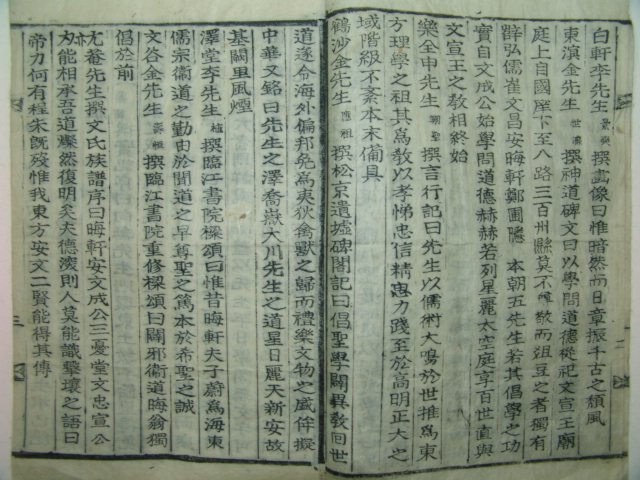 白軒李先生 景奭 撰畫像曰惟暗然而日章振千古之頹風
東溟金先生 世濂 撰神道碑文曰以學問道德從祀文宣王廟
庭上自國庠下至八路三百州縣莫不尊敬而俎豆之者獨有
䟆弘儒崔文昌安晦軒鄭圃隱 本朝五先生若其倡學之功
實自文成公始學問道德赫赫若列星麗太空庭享百世直與
文宣王之敎相終始
樂全申先生 翊聖 撰言行記曰先生以儒術大鳴於世推爲東
方理學之祖其爲敎以孝悌忠信精忠力踐至於高明正大之
域階級不紊本末備具
鶴沙金先生 應祖 撰松京遺墟碑閣記曰倡聖學闢異敎回世
道遂令海外偏邦免爲夷狄禽獸之歸而禮樂文物之盛侔擬
中華又銘曰先生之澤喬嶽大川先生之道星日麗天新安故
基闕里風煙
澤堂李先生 植 撰臨江書院樑頌曰惟昔晦軒夫子蔚爲海東
儒宗衛道之勤由於聞道之早尊聖之篤本於希聖之誠
文谷金先生 壽恒 撰臨江書院重修樑頌曰闢邪衛道晦翁獨
倡於前
尤菴先生撰文氏族譜序曰晦軒安文成公三憂堂文忠宣公
亦爲能相承吾道燦然復明矣夫德溇則人莫能識擊壤之語曰
帝力何有程朱旣歿惟我東方安文二賢能得其傳
二
三